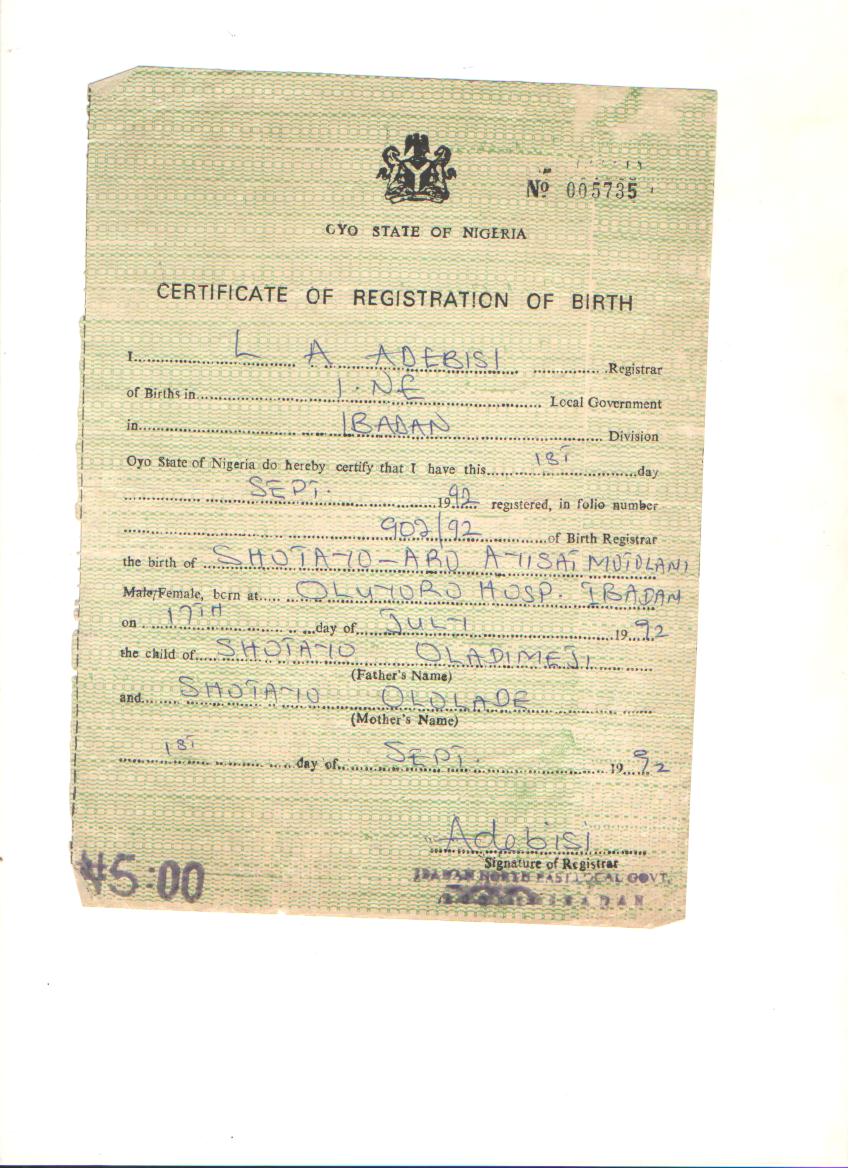 Nº 005735
OYO STATE OF NIGERIA
CERTIFICATE OF REGISTRATION OF BIRTH
I L A ADEBISI Registrar
of Births in I.NE Local Government
in IBADAN Division
Oyo State of Nigeria do hereby certify that I have this 1ST day
SEPT. 1992 registered, in folio number
902/92 of Birth Registrar
the birth of SHOTAYO-ABD AYISAT MOTOLANI
Male/Female, born at OLUYORO HOSP. IBADAN
on 17TH day of JULY 1992
the child of SHOTAYO OLADIMEJI
(Father's Name)
and SHOTAYO OLOLADE
(Mother's Name)
1ST day of SEPT. 1992
Adebisi
Signature of Registrar
IBADAN NORTH EAST LOCAL GOVT.
IBADAN
₦5:00